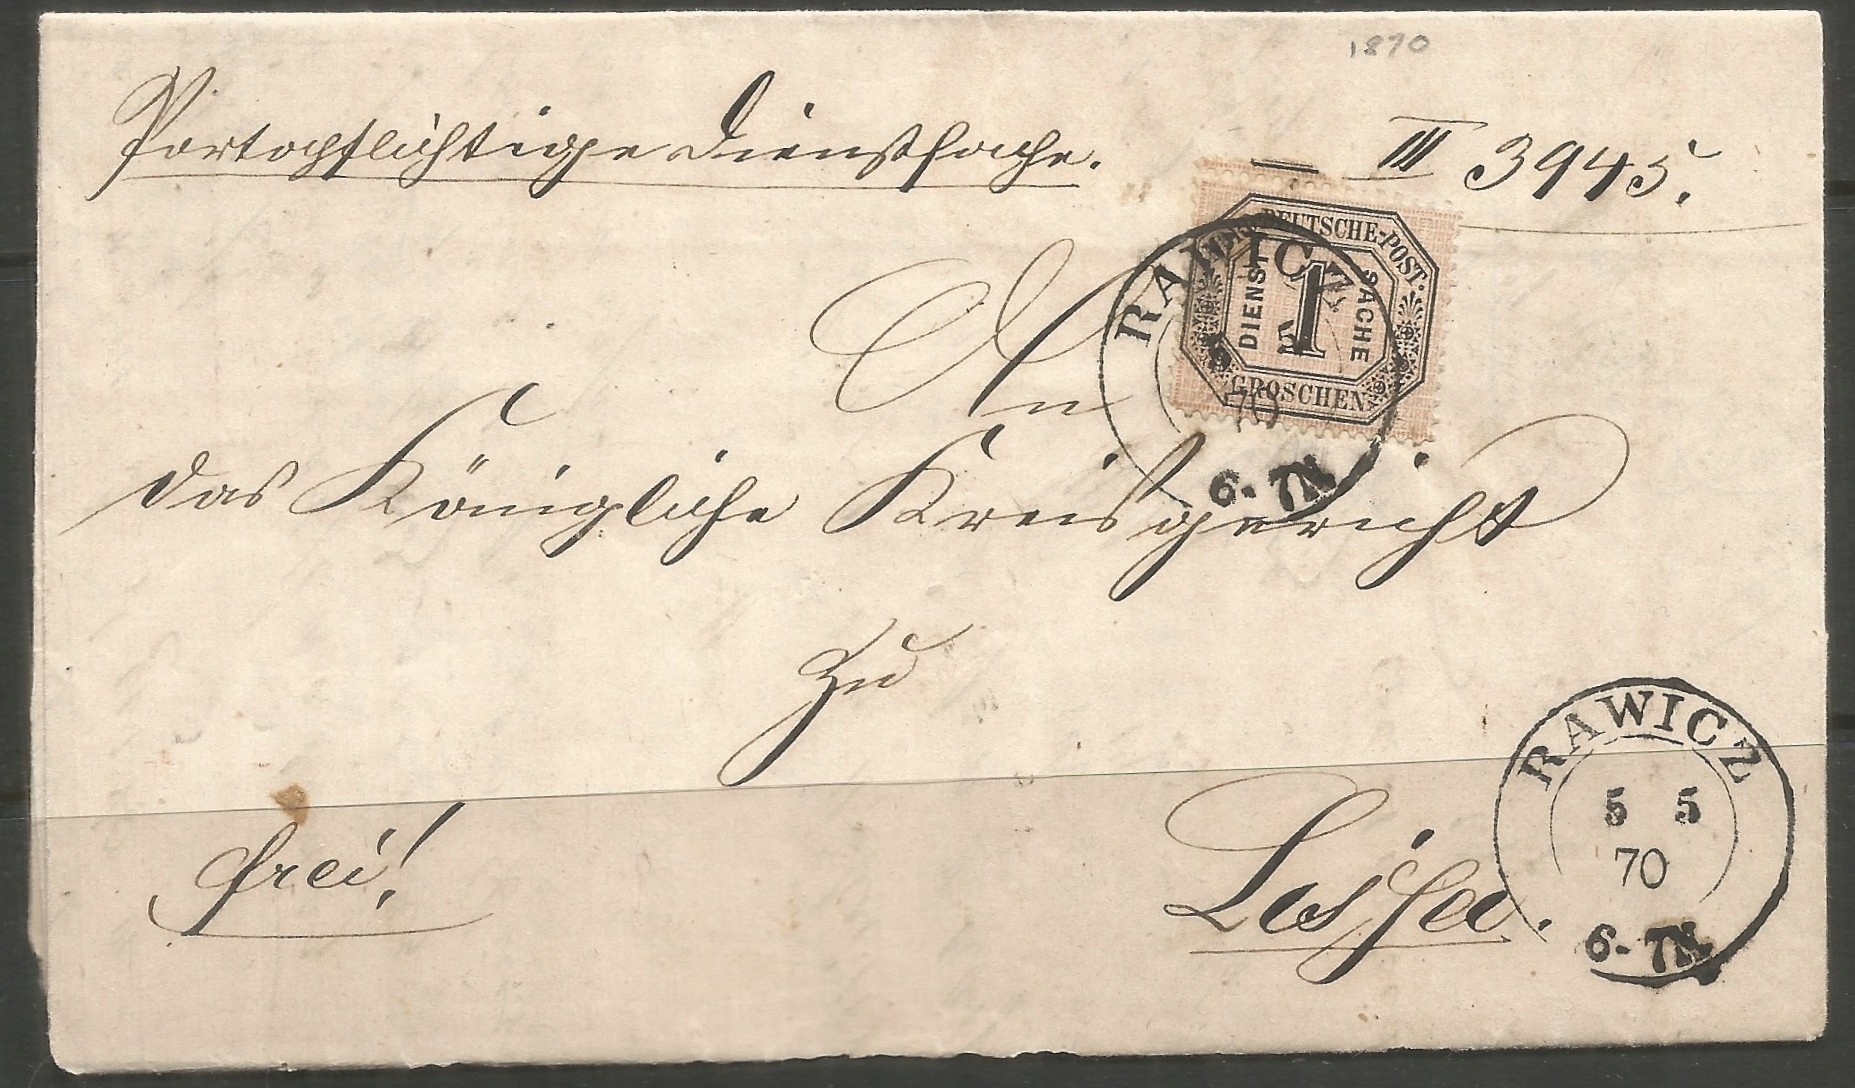 1870
Portopflichtige Dienstsache.
III 3945.
NORDDEUTSCHE-POST.
DIENST SACHE
1
GROSCHEN
RAWICZ
5
70
6-7N
An
das Königliche Kreisgericht
zu
frei!
RAWICZ
5 5
70
6-7N.